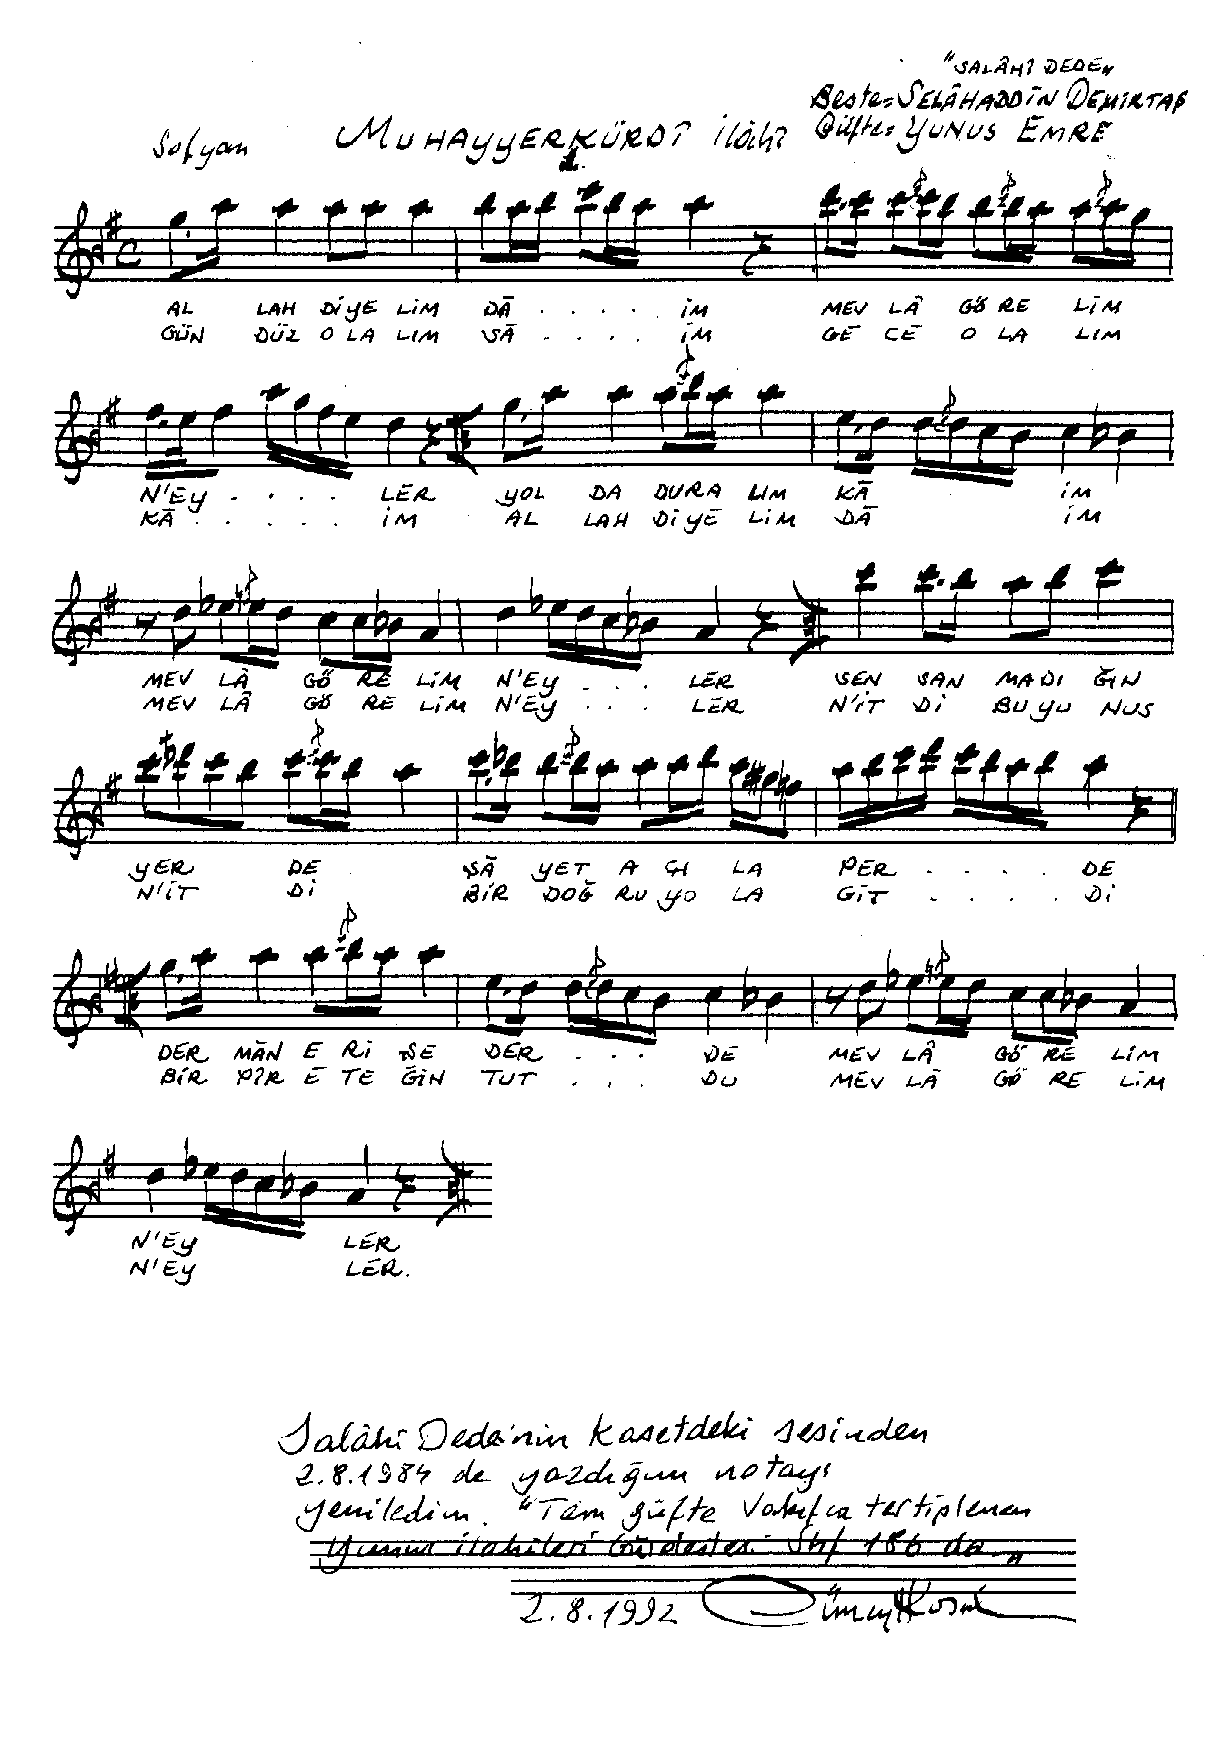 "SALÂHÎ DEDE"
Beste= SELÂHADDİN DEMİRTAŞ
Sofyan MUHAYYERKÜRDÎ İlâhî Güfte= YUNUS EMRE
1.
AL LAH DİYE LİM DÂ . . . . İM MEV LÂ GÖ RE LİM
GÜN DÜZ O LA LIM SÂ . . . . İM GE CE O LA LIM
N'EY . . . . LER YOL DA DURA LIM KÂ İM
KÂ . . . . . İM AL LAH DİYE LİM DÂ İM
MEV LÂ GÖ RE LİM N'EY . . . LER SEN SAN MADI ĞIN
MEV LÂ GÖ RE LİM N'EY . . . LER N'İT Dİ BU YU NUS
YER DE ŞÂ YET A ÇI LA PER . . . . DE
N'İT Dİ BİR DOĞ RU YO LA GİT . . . . Dİ
DER MÂN E Rİ ŞE DER . . . DE MEV LÂ GÖ RE LİM
BİR PÎR E TE ĞİN TUT . . . DU MEV LÂ GÖ RE LİM
N'EY LER
N'EY LER.
Salâhî Dede'nin Kasetdeki sesinden
2.8.1984 de yazdığım notayı
yeniledim. "Tam güfte Vakıfca tertiplenen
Yunus ilahileri Güldestesi Shf 186 da."
2.8.1992